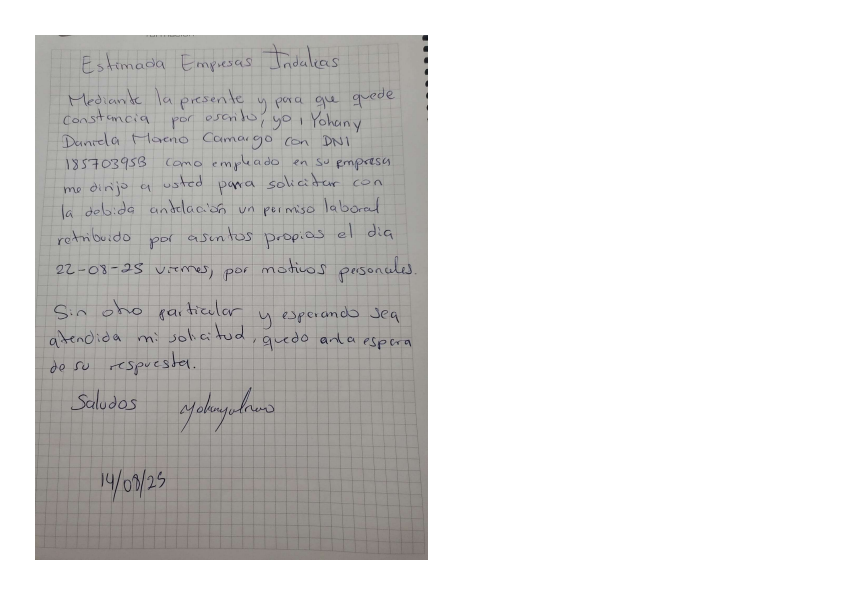 Estimada Empresas Indalicas
Mediante la presente y para que quede
constancia por escrito, yo, Yohany
Daniela Moreno Camargo con DNI
18570395B como empleado en su empresa
me dirijo a usted para solicitar con
la debida antelación un permiso laboral
retribuido por asuntos propios el dia
22-08-25 viernes, por motivos personales.
Sin otro particular y esperando sea
atendida mi solicitud, quedo a la espera
de su respuesta.
Saludos
14/08/25